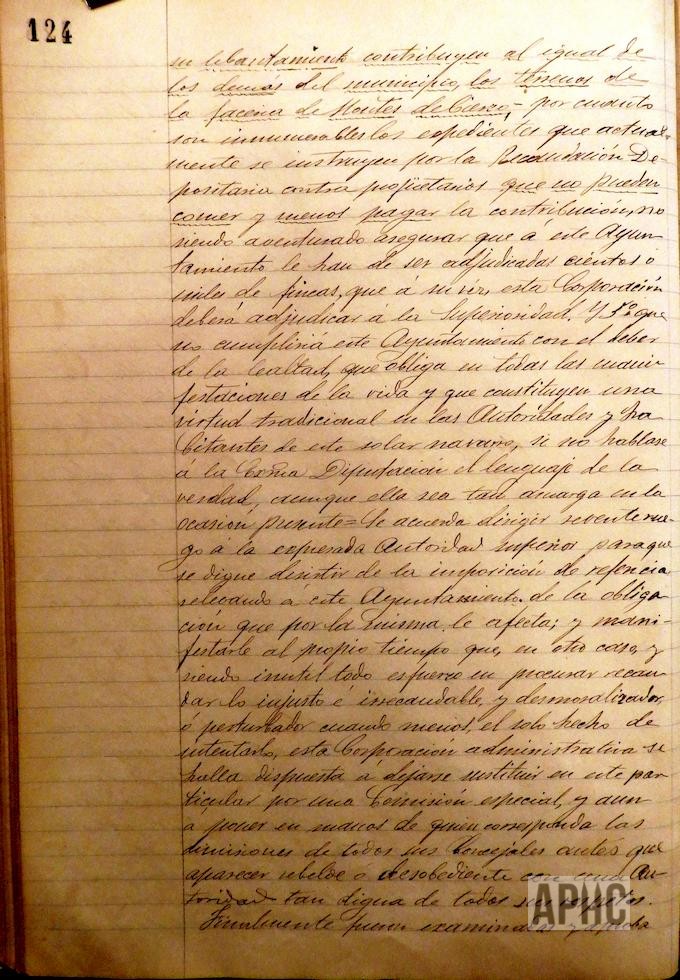 124
su lebantamiento contribuyen al igual de
los demás del municipio, los terrenos de
la facería de Montes de Cierzo; por cuanto
son innumerables los expedientes que actual-
mente se instruyen por la Recaudación De-
positaria contra propietarios que no pueden
comer y menos pagar la contribución, no
siendo aventurado asegurar que á este Ayun
tamiento le han de ser adjudicadas cientos o
miles de fincas, que á su vez, esta Corporación
deberá adjudicar á la Superioridad. Y 5º que
no cumpliría este Ayuntamiento con el deber
de la lealtad, que obliga en todas las mani
festaciones de la vida y que constituyen una
virtud tradicional en las Autoridades y ha
bitantes de este solar navarro, si no hablase
á la Excma Diputación el lenguaje de la
verdad, aunque ella sea tan amarga en la
ocasión presente = Se acuerda dirigir reverente rue-
go á la expresada Autoridad superior para que
se digne desistir de la imposición de refencia
relevando á este Ayuntamiento de la obliga
ción que por la misma le afecta; y mani-
festarle al propio tiempo que, en otro caso, y
siendo inutil todo esfuerzo en procurar recau-
dar lo injusto é irrecaudable, y desmoralizador,
ó perturbador cuando menos, el solo hecho de
intentarlo, esta Corporación administrativa se
halla dispuesta á dejarse sustituir en este par
ticular por una Comisión especial, y aun
a poner en manos de quien corresponda las
dimisiones de todos sus Concejales antes que
aparecer rebelde o desobediente con una Au-
toridad tan digna de todos sus respetos.
Finalmente fueron examinadas y aproba
APHC